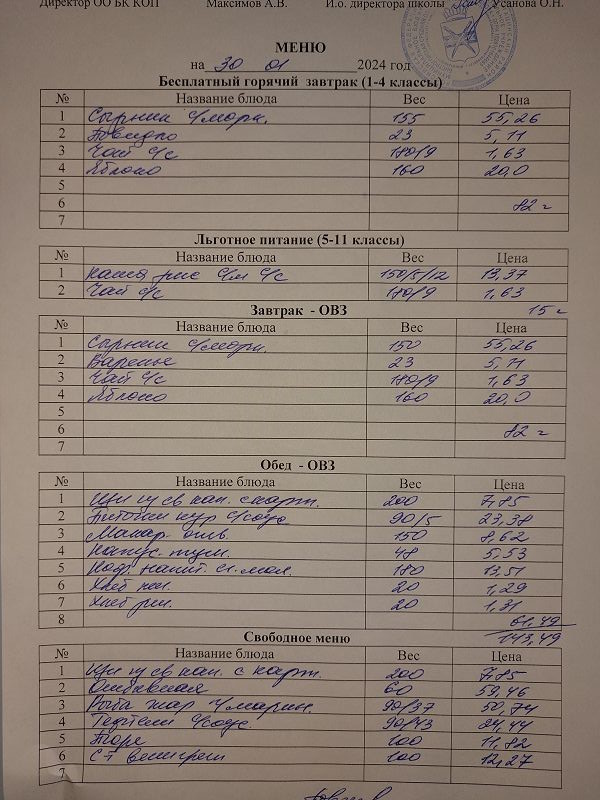 Директор ОО БК КОП Максимов А.В. И.о. директора школы Усанова О.Н.
МЕНЮ
на 30 01 2024 год
Бесплатный горячий завтрак (1-4 классы)
№ Название блюда Вес Цена
1 Сырники с/морк. 155 55,26
2 Повидло 23 5,11
3 Чай с/с 180/9 1,63
4 Яблоко 160 20,0
5
6 82 =
7
Льготное питание (5-11 классы)
№ Название блюда Вес Цена
1 каша рис с/м с/с 150/5/12 13,37
2 Чай с/с 180/9 1,63
15 =
Завтрак - ОВЗ
№ Название блюда Вес Цена
1 Сырники с/морк. 150 55,26
2 Варенье 23 5,11
3 Чай с/с 180/9 1,63
4 Яблоко 160 20,0
5
6 82 =
7
Обед - ОВЗ
№ Название блюда Вес Цена
1 Щи из св кап. с карт. 200 7,85
2 Биточки кур с/соус 90/5 23,38
3 Макар. отв. 150 8,62
4 Капус. туш. 48 5,53
5 Коф. напит. с. мол. 180 13,51
6 Хлеб пш. 20 1,29
7 Хлеб рж. 20 1,31
8 61,49
143,49
Свободное меню
№ Название блюда Вес Цена
1 Щи из св кап. с карт. 200 7,85
2 60 59,46
3 Рыба жар с/марин. 90/37 50,74
4 Тефтели с/соус. 90/43 24,44
5 Пюре 100 11,82
6 С-т винегрет 100 12,27
7